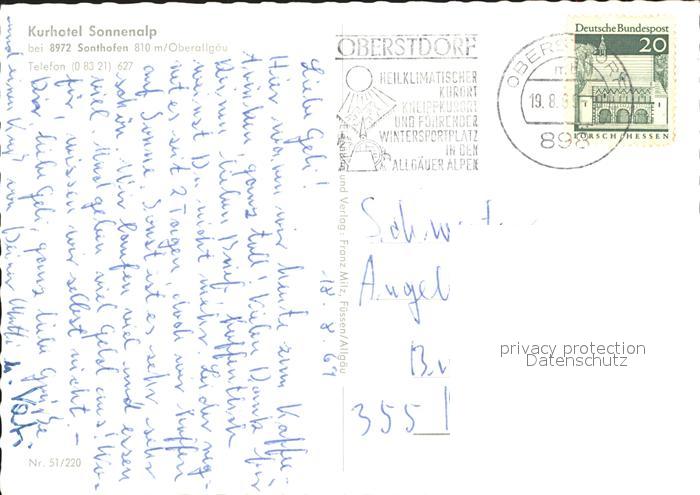 Kurhotel Sonnenalp
bei 8972 Sonthofen 810 m/Oberallgäu
Telefon (0 83 21) 627
OBERSTDORF
HEILKLIMATISCHER
KURORT
KNEIPPKURORT
UND FÜHRENDER
WINTERSPORTPLATZ
IN DEN
ALLGÄUER ALPEN
OBERSTDORF
19. 8. 6
898
Deutsche Bundespost
20
LORSCH/HESSEN
18. 8. 69
Liebe Geli!
Hier waren wir heute zum Kaffee-
trinken, ganz toll! Vielen Dank für
Deinen lieben Brief, hoffentlich
weinst Du nicht mehr. Leider reg-
net es seit 2 Tagen, doch wir hoffen
auf Sonne. Sonst ist es sehr
schön. Wir laufen viel und essen
viel. Und geben viel Geld aus! Wo-
für, wissen wir selbst nicht. –
Dir, liebe Geli, ganz liebe Grüße
und einen Kuß von Deiner Mutti u. Vati
und Verlag: Franz Milz, Füssen/Allgäu
Schw
Angel
355
privacy protection
Datenschutz
Nr. 51/220